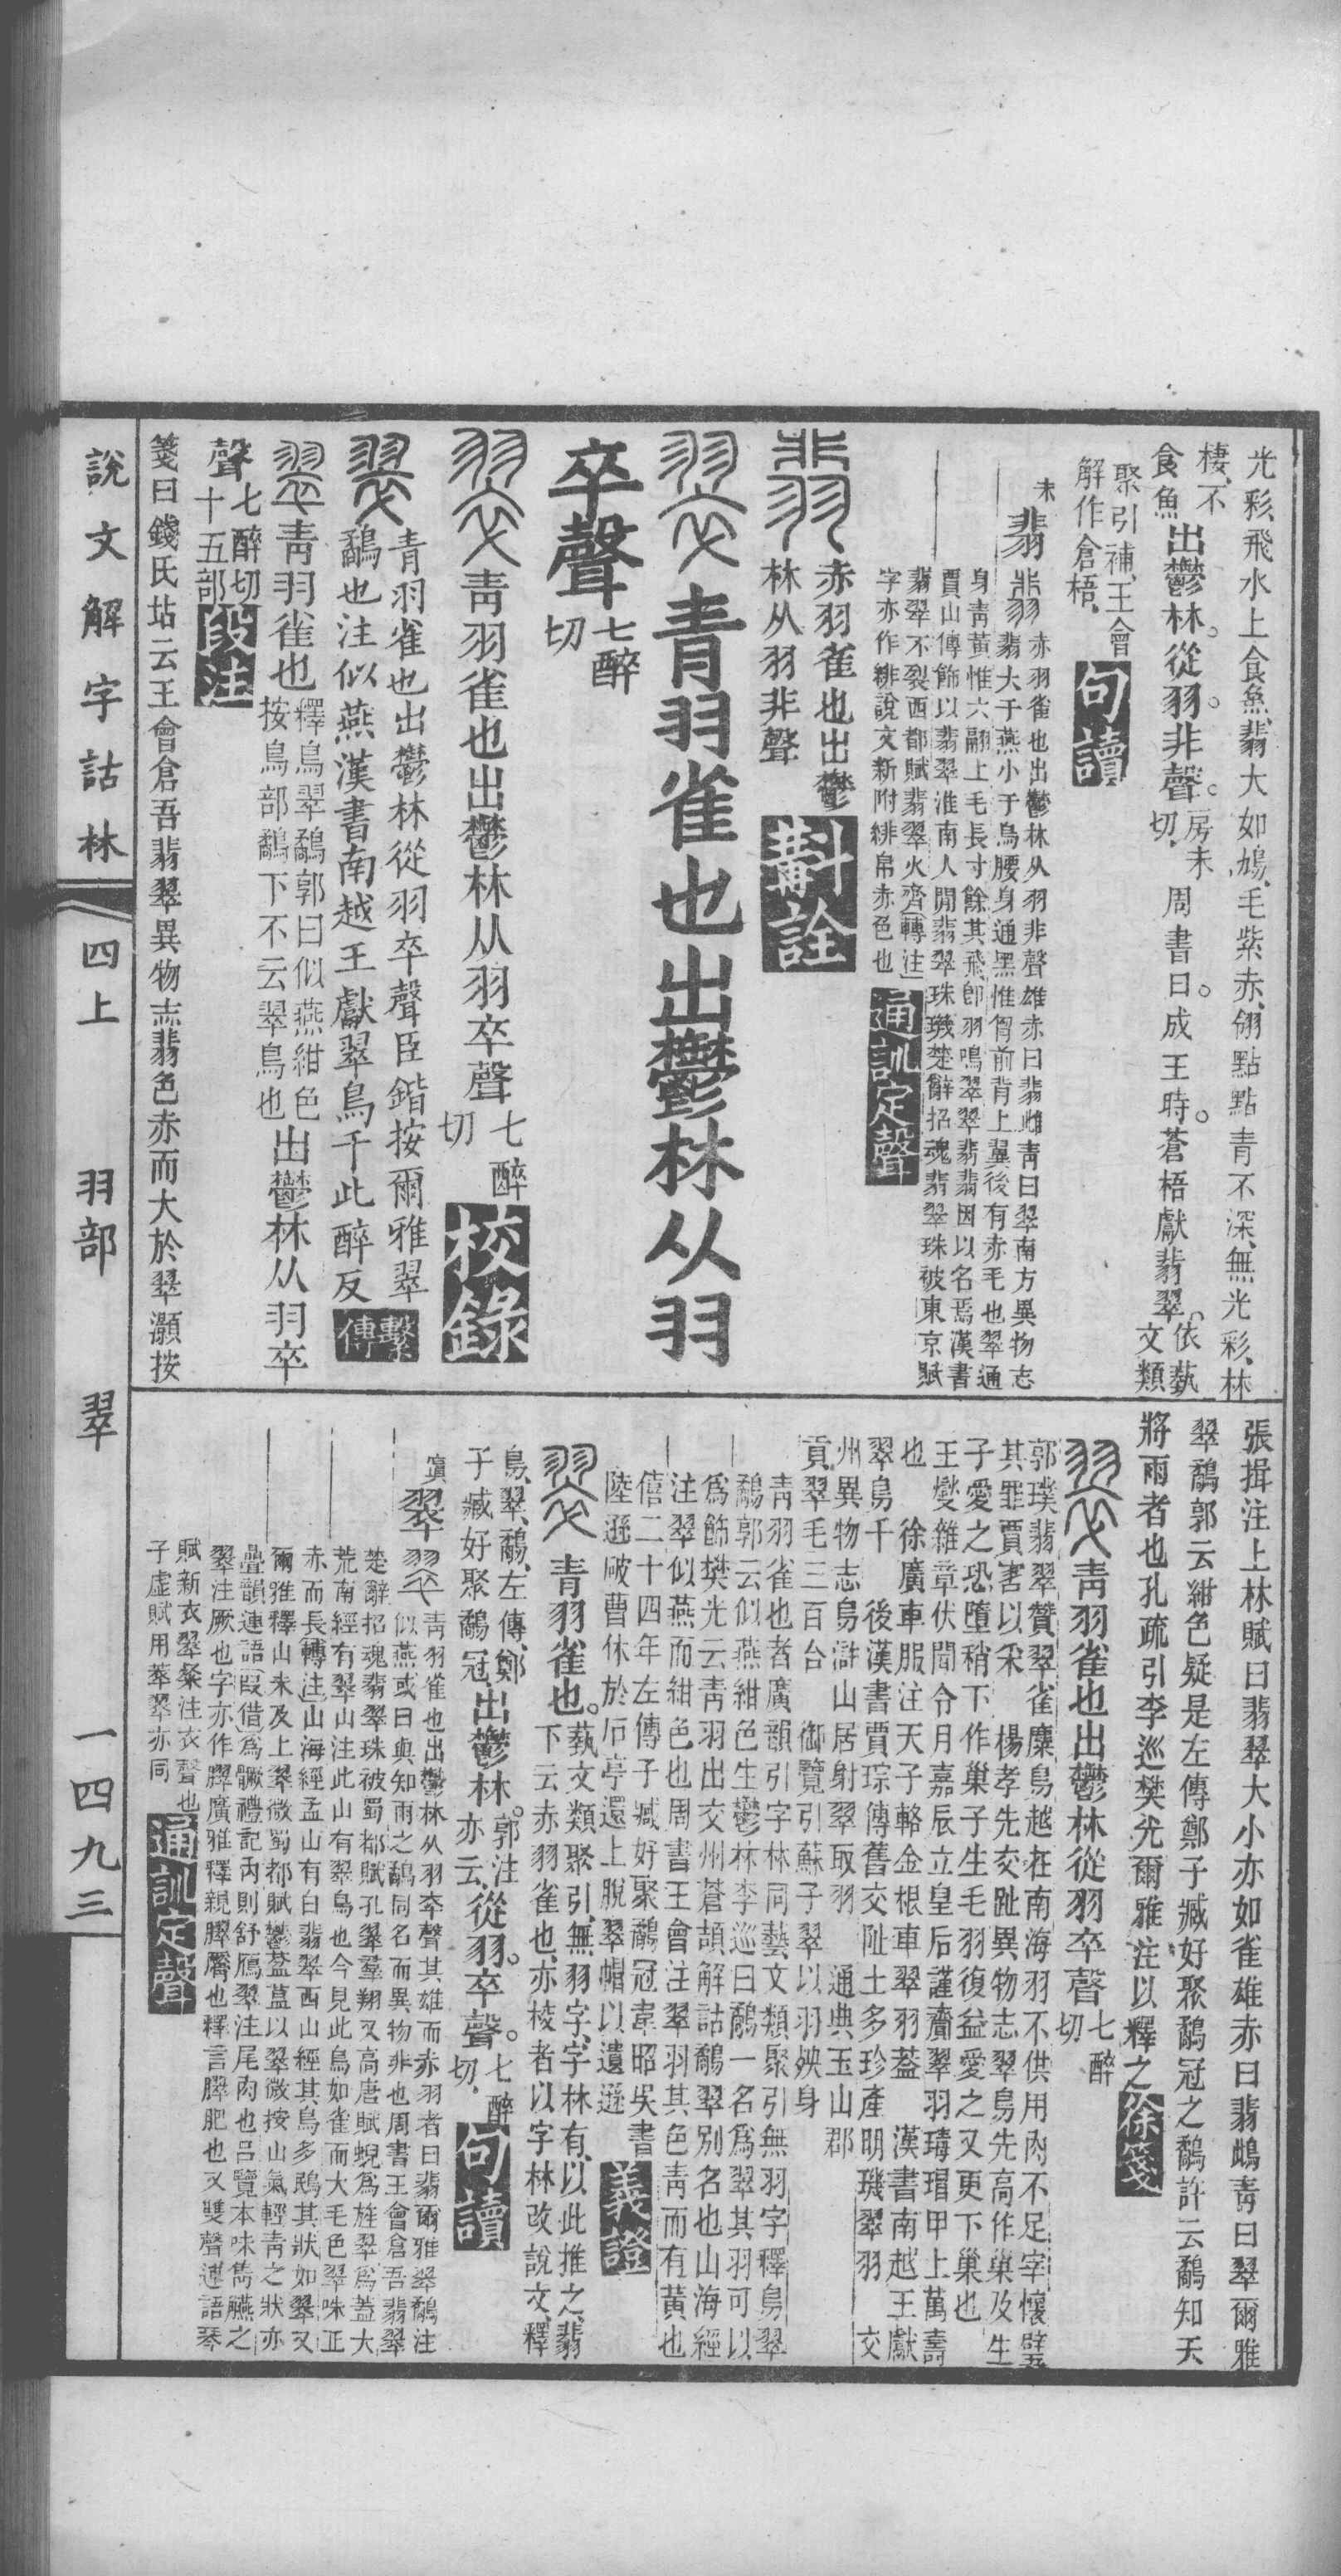 光彩飛水上食魚、翡大如鳩、毛紫赤、翎點點青不深、無光彩、林
棲、不食魚出鬱林。從羽。非聲。房未切、周書曰。成王時。蒼梧獻翡翠。依藝文類
聚引補、王會解作倉梧、句讀
未翡 赤羽雀也出鬱林从羽非聲雄赤曰翡雌青曰翠南方異物志
翡大于燕小于烏腰身通黑惟胷前背上翼後有赤毛也翠通
身青黃惟六翮上毛長寸餘其飛卽羽鳴翠翠翡翡因以名焉漢書
賈山傳飾以翡翠淮南人閒翡翠珠璣楚辭招魂翡翠珠被東京賦
翡翠不裂西都賦翡翠火齊轉注
字亦作緋說文新附緋帛赤色也通訓定聲
赤羽雀也出鬱
林从羽非聲 斠詮
青羽雀也出鬱林从羽
卒聲七醉切
青羽雀也出鬱林从羽卒聲七醉切校錄
青羽雀也出鬱林從羽卒聲臣鍇按爾雅翠
鷸也注似燕漢書南越王獻翠鳥千此醉反繫傳
青羽雀也釋鳥翠鷸郭曰似燕紺色按鳥部鷸下不云翠鳥也出鬱林从羽卒
聲七醉切十五部段注
箋曰錢氏坫云王會倉吾翡翠異物志翡色赤而大於翠灝按
張揖注上林賦曰翡翠大小亦如雀雄赤曰翡雌青曰翠爾雅
翠鷸郭云紺色疑是左傳鄭子臧好聚鷸冠之鷸許云鷸知天
將雨者也孔疏引李巡樊光爾雅注以釋之徐箋
青羽雀也出鬱林從羽卒聲七醉切
郭璞翡翠贊翠雀麋鳥越在南海羽不供用肉不足宰懷璧
其罪賈害以采 楊孝先交趾異物志翠鳥先高作巢及生
子愛之恐墮稍下作巢子生毛羽復益愛之又更下巢也
王燮雜章伏聞令月嘉辰立皇后謹齎翠羽瑇瑁甲上萬壽
也 徐廣車服注天子輅金根車翠羽蓋 漢書南越王獻
翠鳥千 後漢書賈琮傳舊交阯土多珍產明璣翠羽 交
州異物志鳥滸山居射翠取羽 通典玉山郡
貢翠毛三百台 御覽引蘇子翠以羽殃身
青羽雀也者廣韻引字林同藝文類聚引無羽字釋鳥翠
鷸郭云似燕紺色生鬱林李巡曰鷸一名爲翠其羽可以
爲飾樊光云青羽出交州蒼頡解詁鷸翠別名也山海經
注翠似燕而紺色也周書王會注翠羽其色青而有黃也
僖二十四年左傳子臧好聚鷸冠韋昭吳書
陸遜破曹休於石亭還上脫翠帽以遺遜 義證
青羽雀也。藝文類聚引、無羽字、字林有、以此推之、翡
下云赤羽雀也、亦校者以字林改說文、釋
鳥、翠、鷸、左傳、鄭子臧好聚鷸冠、出鬱林。郭注亦云、從羽。卒聲。七醉切、句讀
翠 青羽雀也出鬱林从羽卒聲其雄而赤羽者曰翡爾雅翠鷸注
似燕或曰與知雨之鷸同名而異物非也周書王會倉吾翡翠
楚辭招魂翡翠珠被蜀都賦孔翠羣翔又高唐賦蜺爲旌翠爲蓋大
荒南經有翠山注此山有翠鳥也今見此鳥如雀而大毛色翠味正
赤而長轉注山海經孟山有白翡翠西山經其鳥多鴖其狀如翠又
爾雅釋山未及上翠微蜀都賦鬱葐蒀以翠微按山氣輕青之狀亦
疊韻連語叚借爲臎禮記內則舒鴈翠注尾肉也呂覽本味雋觾之
翠注厥也字亦作臎廣雅釋親臎髁也釋言臎肥也又雙聲連語琴
賦新衣翠粲注衣聲也
子虛賦用萃翠亦同通訓定聲
說文解字詁林 四上 羽部 翠 一四九三